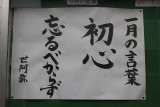 一月の言葉
初心
忘るべからず
世阿弥